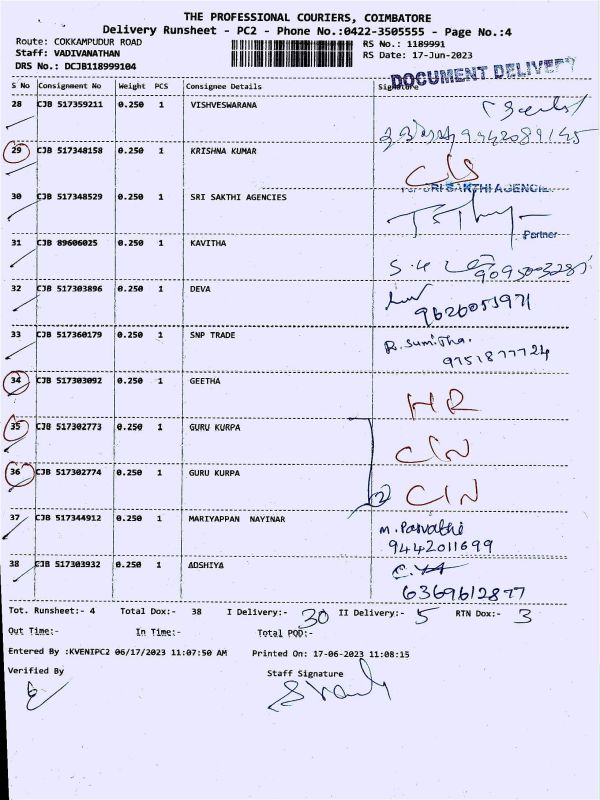 THE PROFESSIONAL COURIERS, COIMBATORE
Delivery Runsheet - PC2 - Phone No.:0422-3505555 - Page No.:4
Route: COKKAMPUDUR ROAD RS No.: 1189991
Staff: VADIVANATHAN RS Date: 17-Jun-2023
DRS No.: DCJB118999104
DOCUMENT DELIVERY
S No Consignment No Weight PCS Consignee Details Signature
28 CJB 517359211 0.250 1 VISHVESWARANA
9942089145
29 CJB 517348158 0.250 1 KRISHNA KUMAR
C/S
SRI SAKTHI AGENCIES
30 CJB 517348529 0.250 1 SRI SAKTHI AGENCIES
Partner
31 CJB 89606025 0.250 1 KAVITHA
32 CJB 517303896 0.250 1 DEVA
33 CJB 517360179 0.250 1 SNP TRADE
R. Sumitha.
9751877724
34 CJB 517303092 0.250 1 GEETHA
HR
35 CJB 517302773 0.250 1 GURU KURPA
CIN
36 CJB 517302774 0.250 1 GURU KURPA
2 CIN
37 CJB 517344912 0.250 1 MARIYAPPAN NAYINAR
M. Parvathi
9442011699
38 CJB 517303932 0.250 1 ADSHIYA
6369612877
Tot. Runsheet:- 4 Total Dox:- 38 I Delivery:- 30 II Delivery:- 5 RTN Dox:- 3
Out Time:- In Time:- Total POD:-
Entered By :KVENIPC2 06/17/2023 11:07:50 AM Printed On: 17-06-2023 11:08:15
Verified By Staff Signature